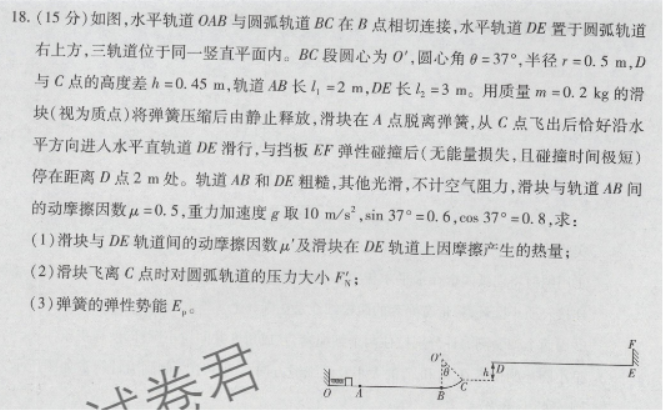 18. (15 分)如图,水平轨道 OAB 与圆弧轨道 BC 在 B 点相切连接,水平轨道 DE 置于圆弧轨道
右上方,三轨道位于同一竖直平面内。BC 段圆心为 O′,圆心角 θ=37°,半径 r=0.5 m,D
与 C 点的高度差 h=0.45 m,轨道 AB 长 l₁=2 m,DE 长 l₂=3 m。用质量 m=0.2 kg 的滑
块(视为质点)将弹簧压缩后由静止释放,滑块在 A 点脱离弹簧,从 C 点飞出后恰好沿水
平方向进入水平直轨道 DE 滑行,与挡板 EF 弹性碰撞后(无能量损失,且碰撞时间极短)
停在距离 D 点 2 m 处。轨道 AB 和 DE 粗糙,其他光滑,不计空气阻力,滑块与轨道 AB 间
的动摩擦因数 μ=0.5,重力加速度 g 取 10 m/s²,sin 37°=0.6,cos 37°=0.8,求:
(1)滑块与 DE 轨道间的动摩擦因数 μ′及滑块在 DE 轨道上因摩擦产生的热量;
(2)滑块飞离 C 点时对圆弧轨道的压力大小 F′N;
(3)弹簧的弹性势能 Ep。
试卷君
O′ θ h D F
O A B C E